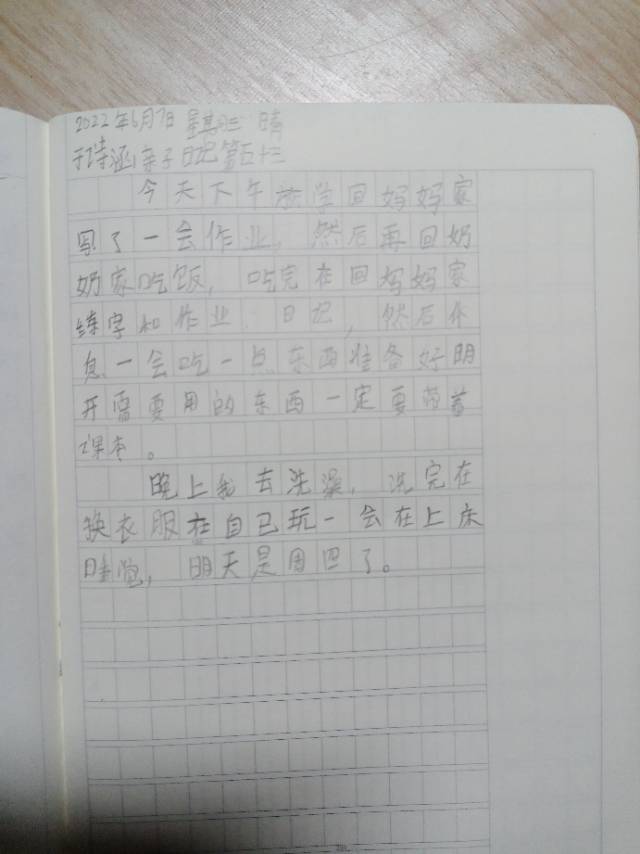 2022年6月7日 星期二 晴
于诗涵亲子日记第五十三
今天下午放学回妈妈家
写了一会作业，然后再回奶
奶家吃饭，吃完在回妈妈家
练字和作业、日记，然后休
息一会吃一点东西准备好明
开需要用的东西一定要带着
课本。
晚上我去洗澡，洗完在
换衣服在自己玩一会在上床
睡觉，明天是周四了。